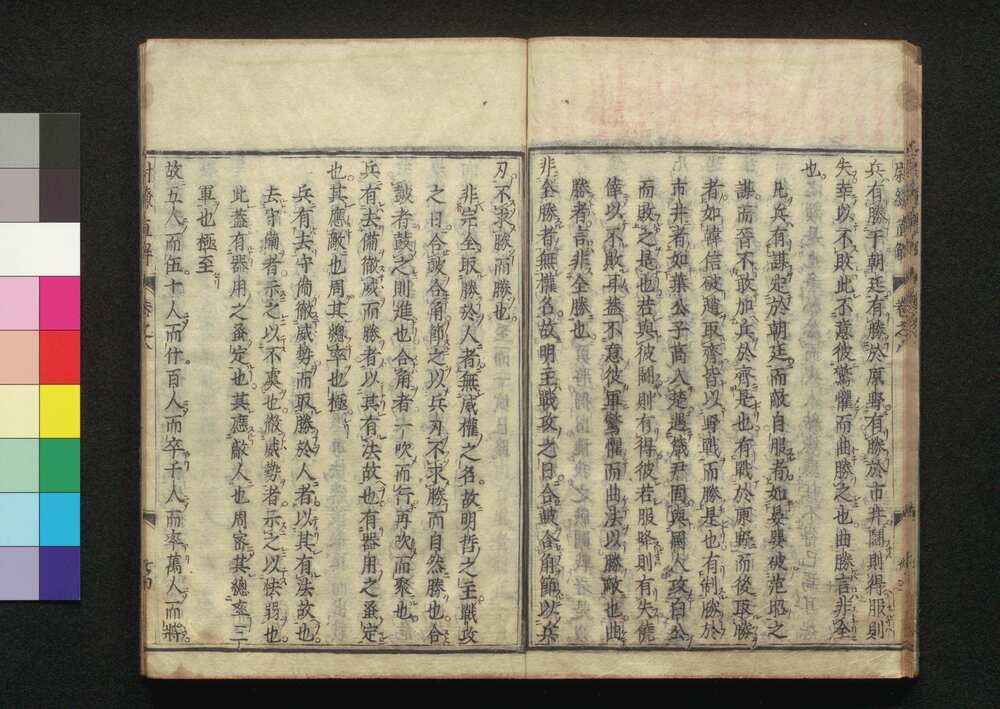 兵有勝于朝廷有勝於原野有勝於市井鬪則得服則
失幸以不敗此不意彼驚懼而曲勝之也曲勝言非全
也
凡兵有謀定於朝廷而敵自服者如晏嬰破范昭之
謀而晉不敢加兵於齊是也有戰於原野而後取勝
者如韓信破趙取齊皆以野戰而勝是也有制勝於
市井者如葉公子高入楚遇箴尹固與國人攻白公
而敗之是也若與彼鬪則有得彼若服降則有失僥
倖以不敗耳蓋不意彼軍驚懼而曲法以勝敵也曲
勝者言非全勝也
非全勝者無權名故明主戰攻之日合鼓合角節以兵
刃不求勝而勝也
非完全取勝於人者無威權之名故明哲之主戰攻
之日合鼓合角節之以兵刃不求勝而自然勝也合
鼓者鼓之則進也合角者一吹而行再吹而聚也
兵有去備徹威而勝者以其有法故也有器用之蚤定
也其應敵也周其總率也極
兵有去守備徹威勢而取勝於人者以其有法故也
去守備者示之以不虞也徹威勢者示之以怯弱也
此蓋有器用之蚤定也其應敵人也周密其總率三
軍也極至
故五人而伍十人而什百人而卒千人而率萬人而將